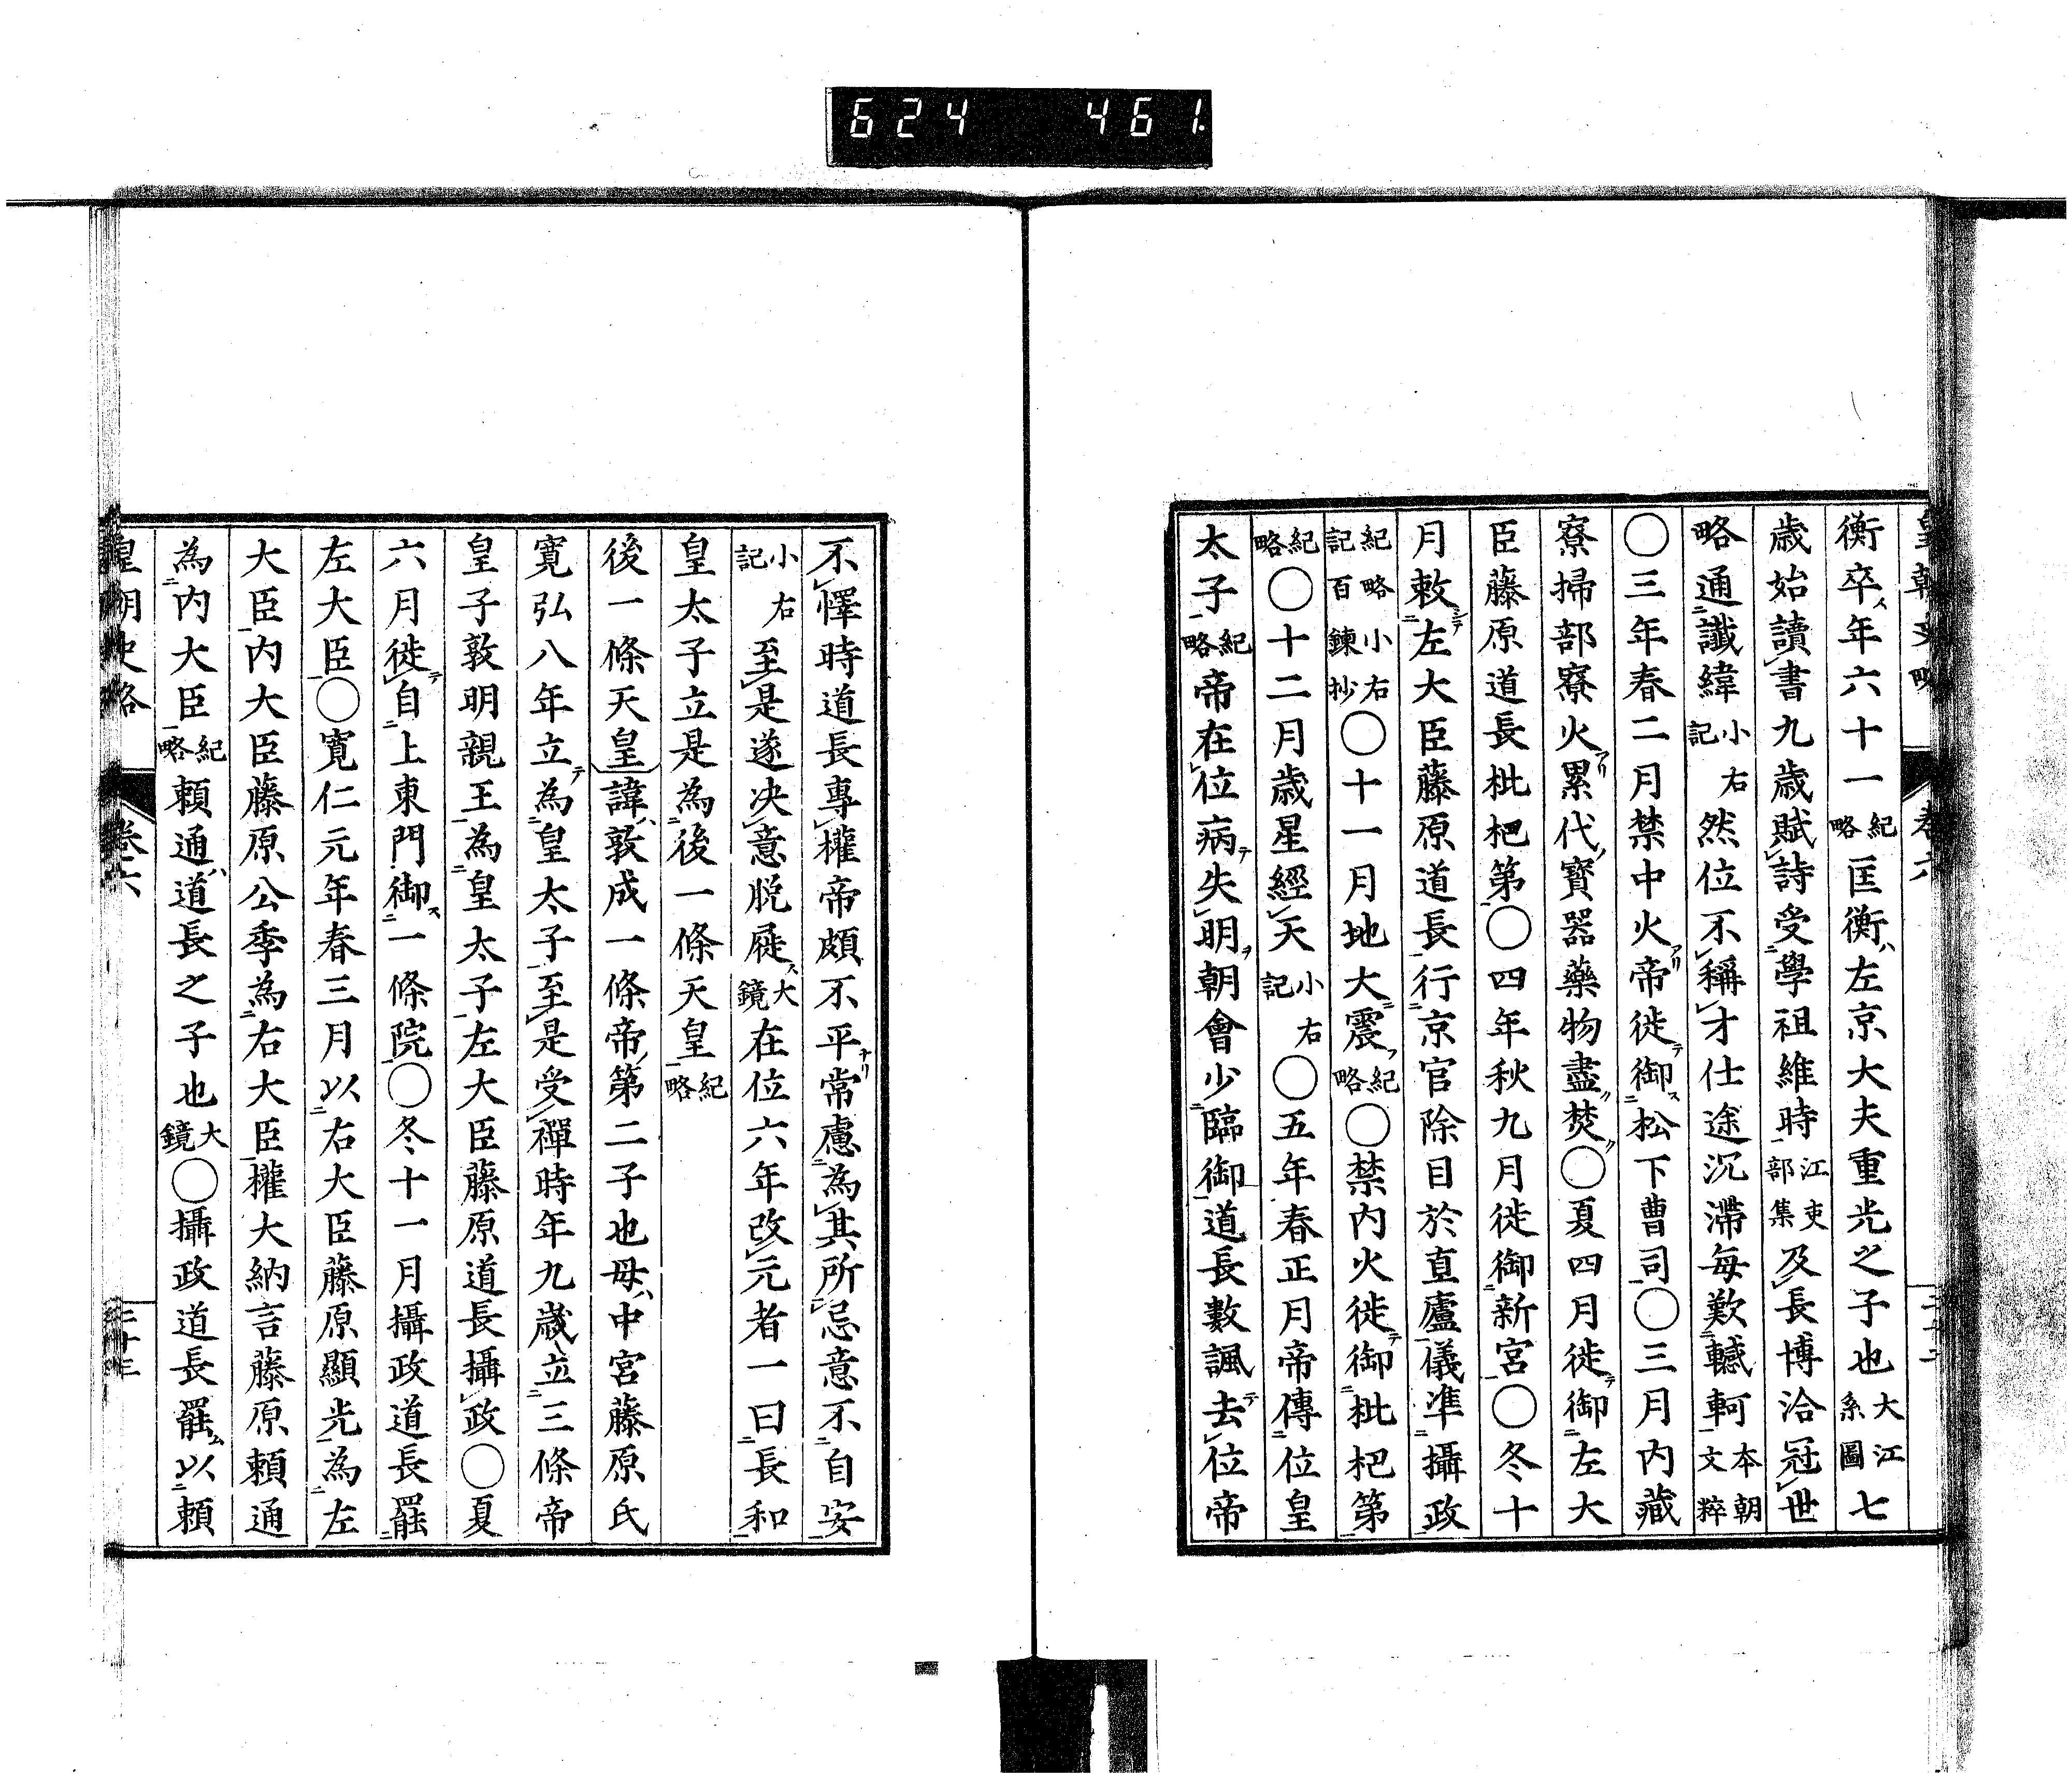 624 461
衡卒年六十一紀略匡衡左京大夫重光之子也大江系圖七
歳始讀書九歳賦詩受學祖維時江吏部集及長博洽冠世
略通讖緯小右記然位不稱才仕途沉滯每歎轗軻本朝文粹
〇三年春二月禁中火帝徙御松下曹司〇三月内藏
寮掃部寮火累代寳器藥物盡焚〇夏四月徙御左大
臣藤原道長枇杷第〇四年秋九月徙御新宮〇冬十
月敕左大臣藤原道長行京官除目於直廬儀準攝政
紀略小右記百鍊抄〇十一月地大震紀略〇禁内火徙御枇杷第
紀略〇十二月歳星經天小右記〇五年春正月帝傳位皇
太子紀略帝在位病失明朝會少臨御道長數諷去位帝
不懌時道長專權帝頗不平常慮為其所忌意不自安
小右記至是遂决意脱屣大鏡在位六年改元者一曰長和
皇太子立是為後一條天皇紀略
後一條天皇諱敦成一條帝第二子也母中宮藤原氏
寛弘八年立為皇太子至是受禪時年九歳立三條帝
皇子敦明親王為皇太子左大臣藤原道長攝政〇夏
六月徙自上東門御一條院〇冬十一月攝政道長罷
左大臣〇寛仁元年春三月以右大臣藤原顯光為左
大臣内大臣藤原公季為右大臣權大納言藤原頼通
為内大臣紀略頼通道長之子也大鏡〇攝政道長罷以頼